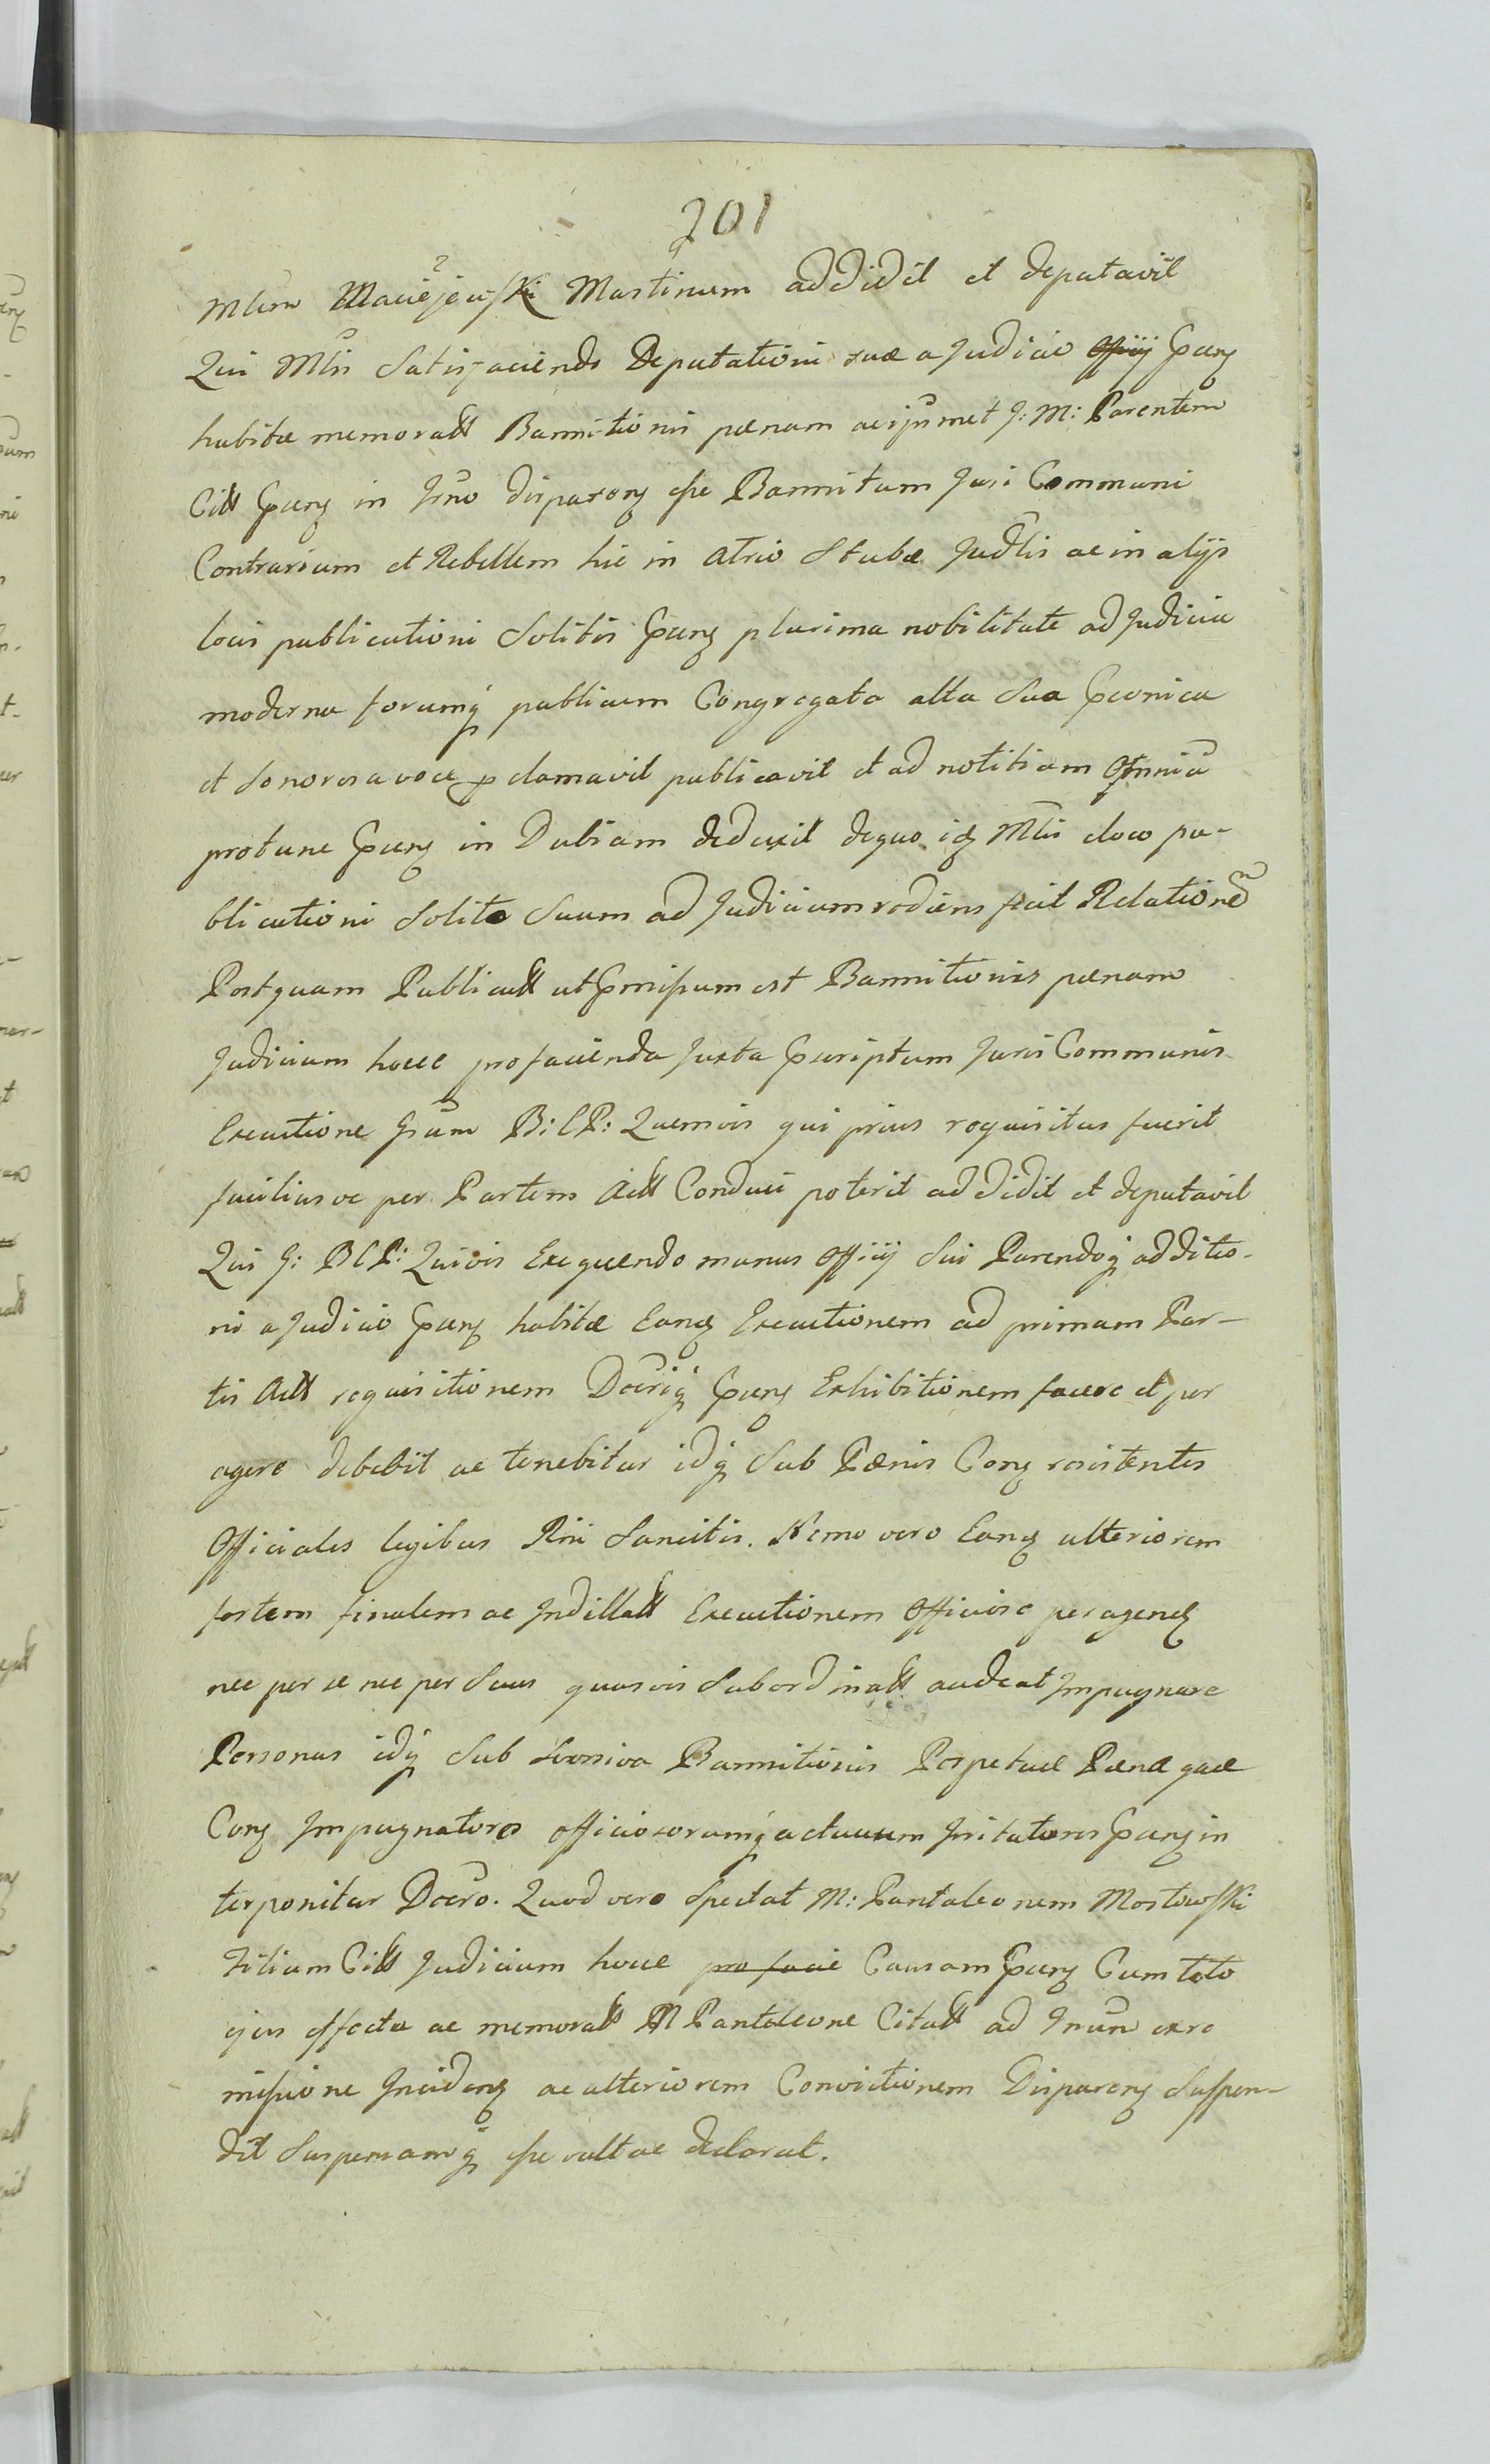 201
Mlem Maciejewski Martinum addidit et deputavit
Qui Mlis Satisfaciendo Deputationi suæ a Judicio Officij Pnty
habitæ memoratt Bannitionis pænam ac ipsummet J: M: Parentem
Citt Pnty in Trno disparen esse Bannitum Juri Communi
Contrarium et Rebellem hic in atrio Stubæ Judlis ac in alijs
locis publicationi Solitis Pnty plurima nobilitate ad Judicia
moderna forumq publicum Congregata alta Sua Pconica
et Sonorosa voce pclamavit publicavit et ad notitiam Omniu
protunc Pnty in Dubiam deduxit dequo idq Mlis eloco pu-
blicationi Solito Suum ad Judicium rediens fecit Relatione
Postquam Publicatt ut Pmissum est Bannitionis pænam
Judicium hocce pro facienda Juxta Pscriptum Juris Communis
Executione Gsum B: C P: Quemvis qui prius requisitus fuerit
faciliusve per Partem Actt Conduci poterit addidit et deputavit
Qui G: B C P: Quivis Exequendo munus Officij Sui Parendoq additio-
ni a Judicio Pnty habitæ Eandq Executionem ad primam Par-
tis Actt requisitionem Decriq Pnty Exhibitionem facere et per
agere debebit ac tenebitur idq Sub Pænis Con resistentes
Officiales legibus Rni Sancitis. Nemo vero Eandq ulteriorem
fortem finalem ac Indillatt Executionem Officiose peragend
nec per se nec per Suas quasvis Subordinatt audeat Impugnare
Personas idq Sub Bannitionis Perpetuæ Pæna quæ
Con Impugnatores officiosorumq actuum Irritatores Pnty in
terponitur Decro. Quod vero Spectat M: Pantaleonem Mostowski
Filium Citt Judicium hocce pro facie Causam Pnty Cum toto
ejus effectu ac memoratt M Pantaleone Citatt ad Tnum exre
missione Inciden ac ulteriorem Convictionem Disparen Suspen-
dit Suspensamq esse vult ac declarat.